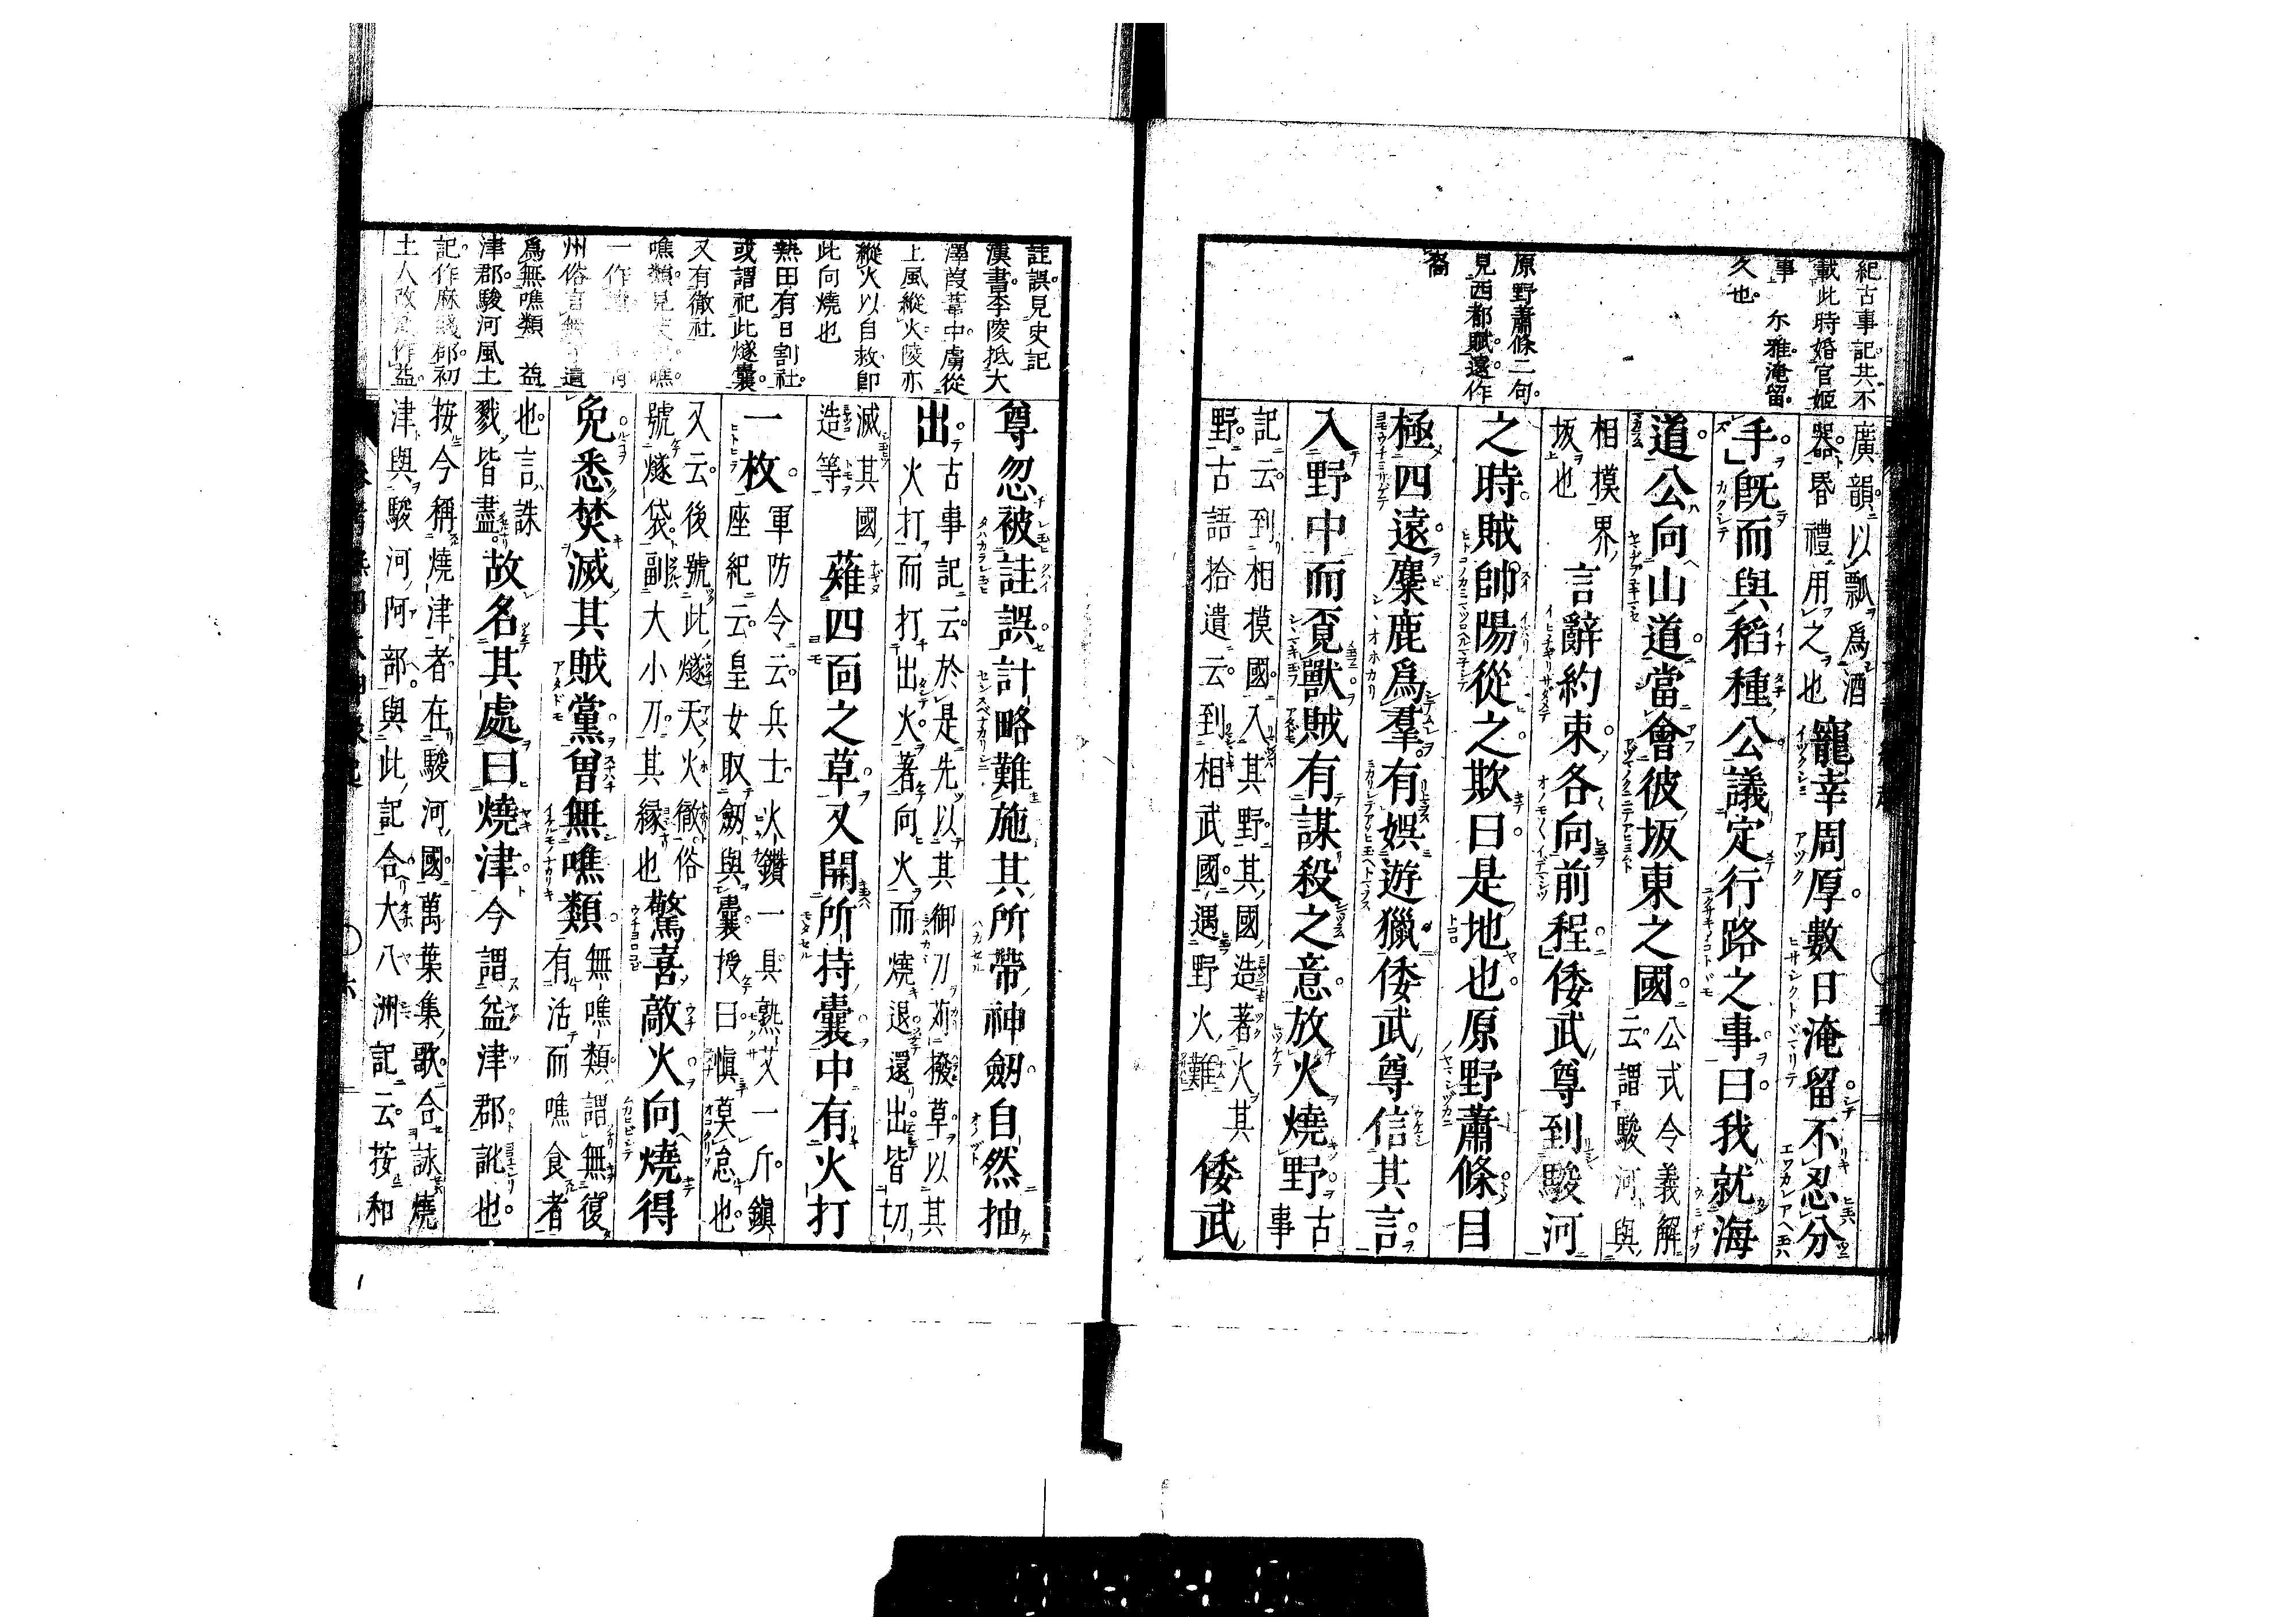 紀古事記共不
載此時婚官姬
事　尓雅淹留
久也
原野蕭條二句
見西都賦遠作
裔
廣韻以瓢爲酒
器昏禮用之也
寵幸周厚數日淹留不忍分
手既而與稻種公議定行路之事曰我就海
道公向山道當會彼坂東之國
公式令義解
云謂駿河與
相模界
坂也
言辭約束各向前程倭武尊到駿河
之時賊帥陽從之欺曰是地也原野蕭條目
極四遠麋鹿爲羣有娯遊獵倭武尊信其言
入野中而覓獸賊有謀殺之意放火燒野
古
事
記云到相模國入其野其國造著火其
野古語拾遺云到相武國遇野火難
倭武
註誤見史記
漢書李陵抵大
澤葭葦中虜從
上風縱火陵亦
縱火以自救卽
此向燒也
熱田有日割社
或謂祀此燧嚢
又有徹社
噍類見
一作
州俗言無遺
爲無噍類　益
津郡駿河風土
記作麻郡初
土人改作益
尊忽被註誤計略難施其所帶神劔自然抽
出
古事記云於是先以其御刀苅撥草以其
火打而打出火著向火而燒退還出皆切
滅其國
造等
薙四面之草又開所持嚢中有火打
一枚
軍防令云兵士火鑽一具熟艾一斤鎭
座紀云皇女取劔與嚢授曰愼莫怠也
又云後號此燧天火徹俗
號燧袋副大小刀其縁也
驚喜敲火向燒得
免悉焚滅其賊黨曾無噍類
無噍類謂無復
有活而噍食者
也言誅
戮皆盡
故名其處曰燒津今謂益津郡訛也
按今稱燒津者在駿河國萬葉集歌合詠燒
津與駿河阿部與此記合大八洲記云按和